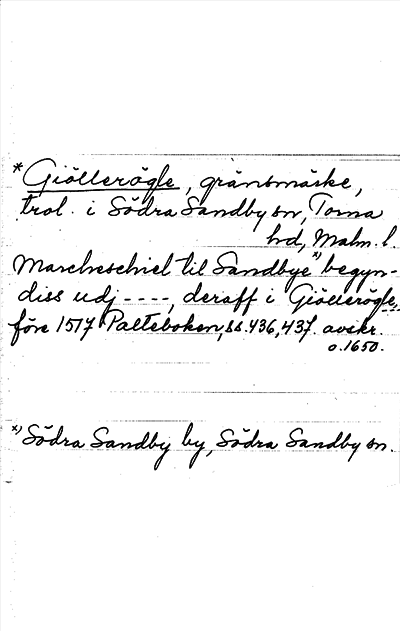 * Giöllerögle, gränsmärke,
trol. i Södra Sandby sn, Torna
hd, Malm. l.
Marcheschiel til Sandbye x) begyn-
diss udj ----, deraff i Giöllerögle,---
före 1517 Palteboken, ss. 436, 437. avskr.
o. 1650.
x) Södra Sandby by, Södra Sandby sn.